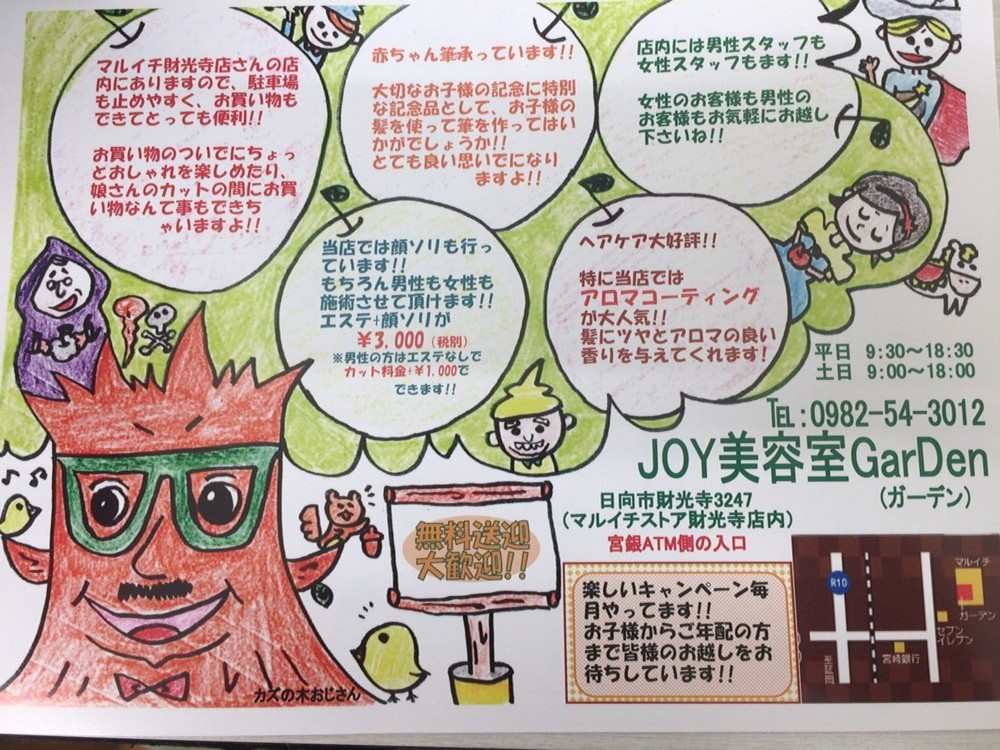 マルイチ財光寺店さんの店
内にありますので、駐車場
も止めやすく、お買い物も
できてとっても便利!!
お買い物のついでにちょっ
とおしゃれを楽しめたり、
娘さんのカットの間にお買
い物なんて事もできち
ゃいますよ!!
赤ちゃん筆承っています!!
大切なお子様の記念に特別
な記念品として、お子様の
髪を使って筆を作ってはい
かがでしょうか!!
とても良い思いでになり
ますよ!!
店内には男性スタッフも
女性スタッフもます!!
女性のお客様も男性の
お客様もお気軽にお越し
下さいね!!
当店では顔ソリも行っ
ています!!
もちろん男性も女性も
施術させて頂けます!!
エステ+顔ソリが
¥3,000(税別)
※男性の方はエステなしで
カット料金+¥1,000で
できます!!
ヘアケア大好評!!
特に当店では
アロマコーティング
が大人気!!
髪にツヤとアロマの良い
香りを与えてくれます!
平日 9:30～18:30
土日 9:00～18:00
℡:0982-54-3012
JOY美容室GarDen
(ガーデン)
日向市財光寺3247
(マルイチストア財光寺店内)
宮銀ATM側の入口
無料送迎
大歓迎!!
楽しいキャンペーン毎
月やってます!!
お子様からご年配の方
まで皆様のお越しをお
待ちしています!!
カズの木おじさん
R10
マルイチ
ガーデン
セブン
イレブン
宮崎銀行
至延岡